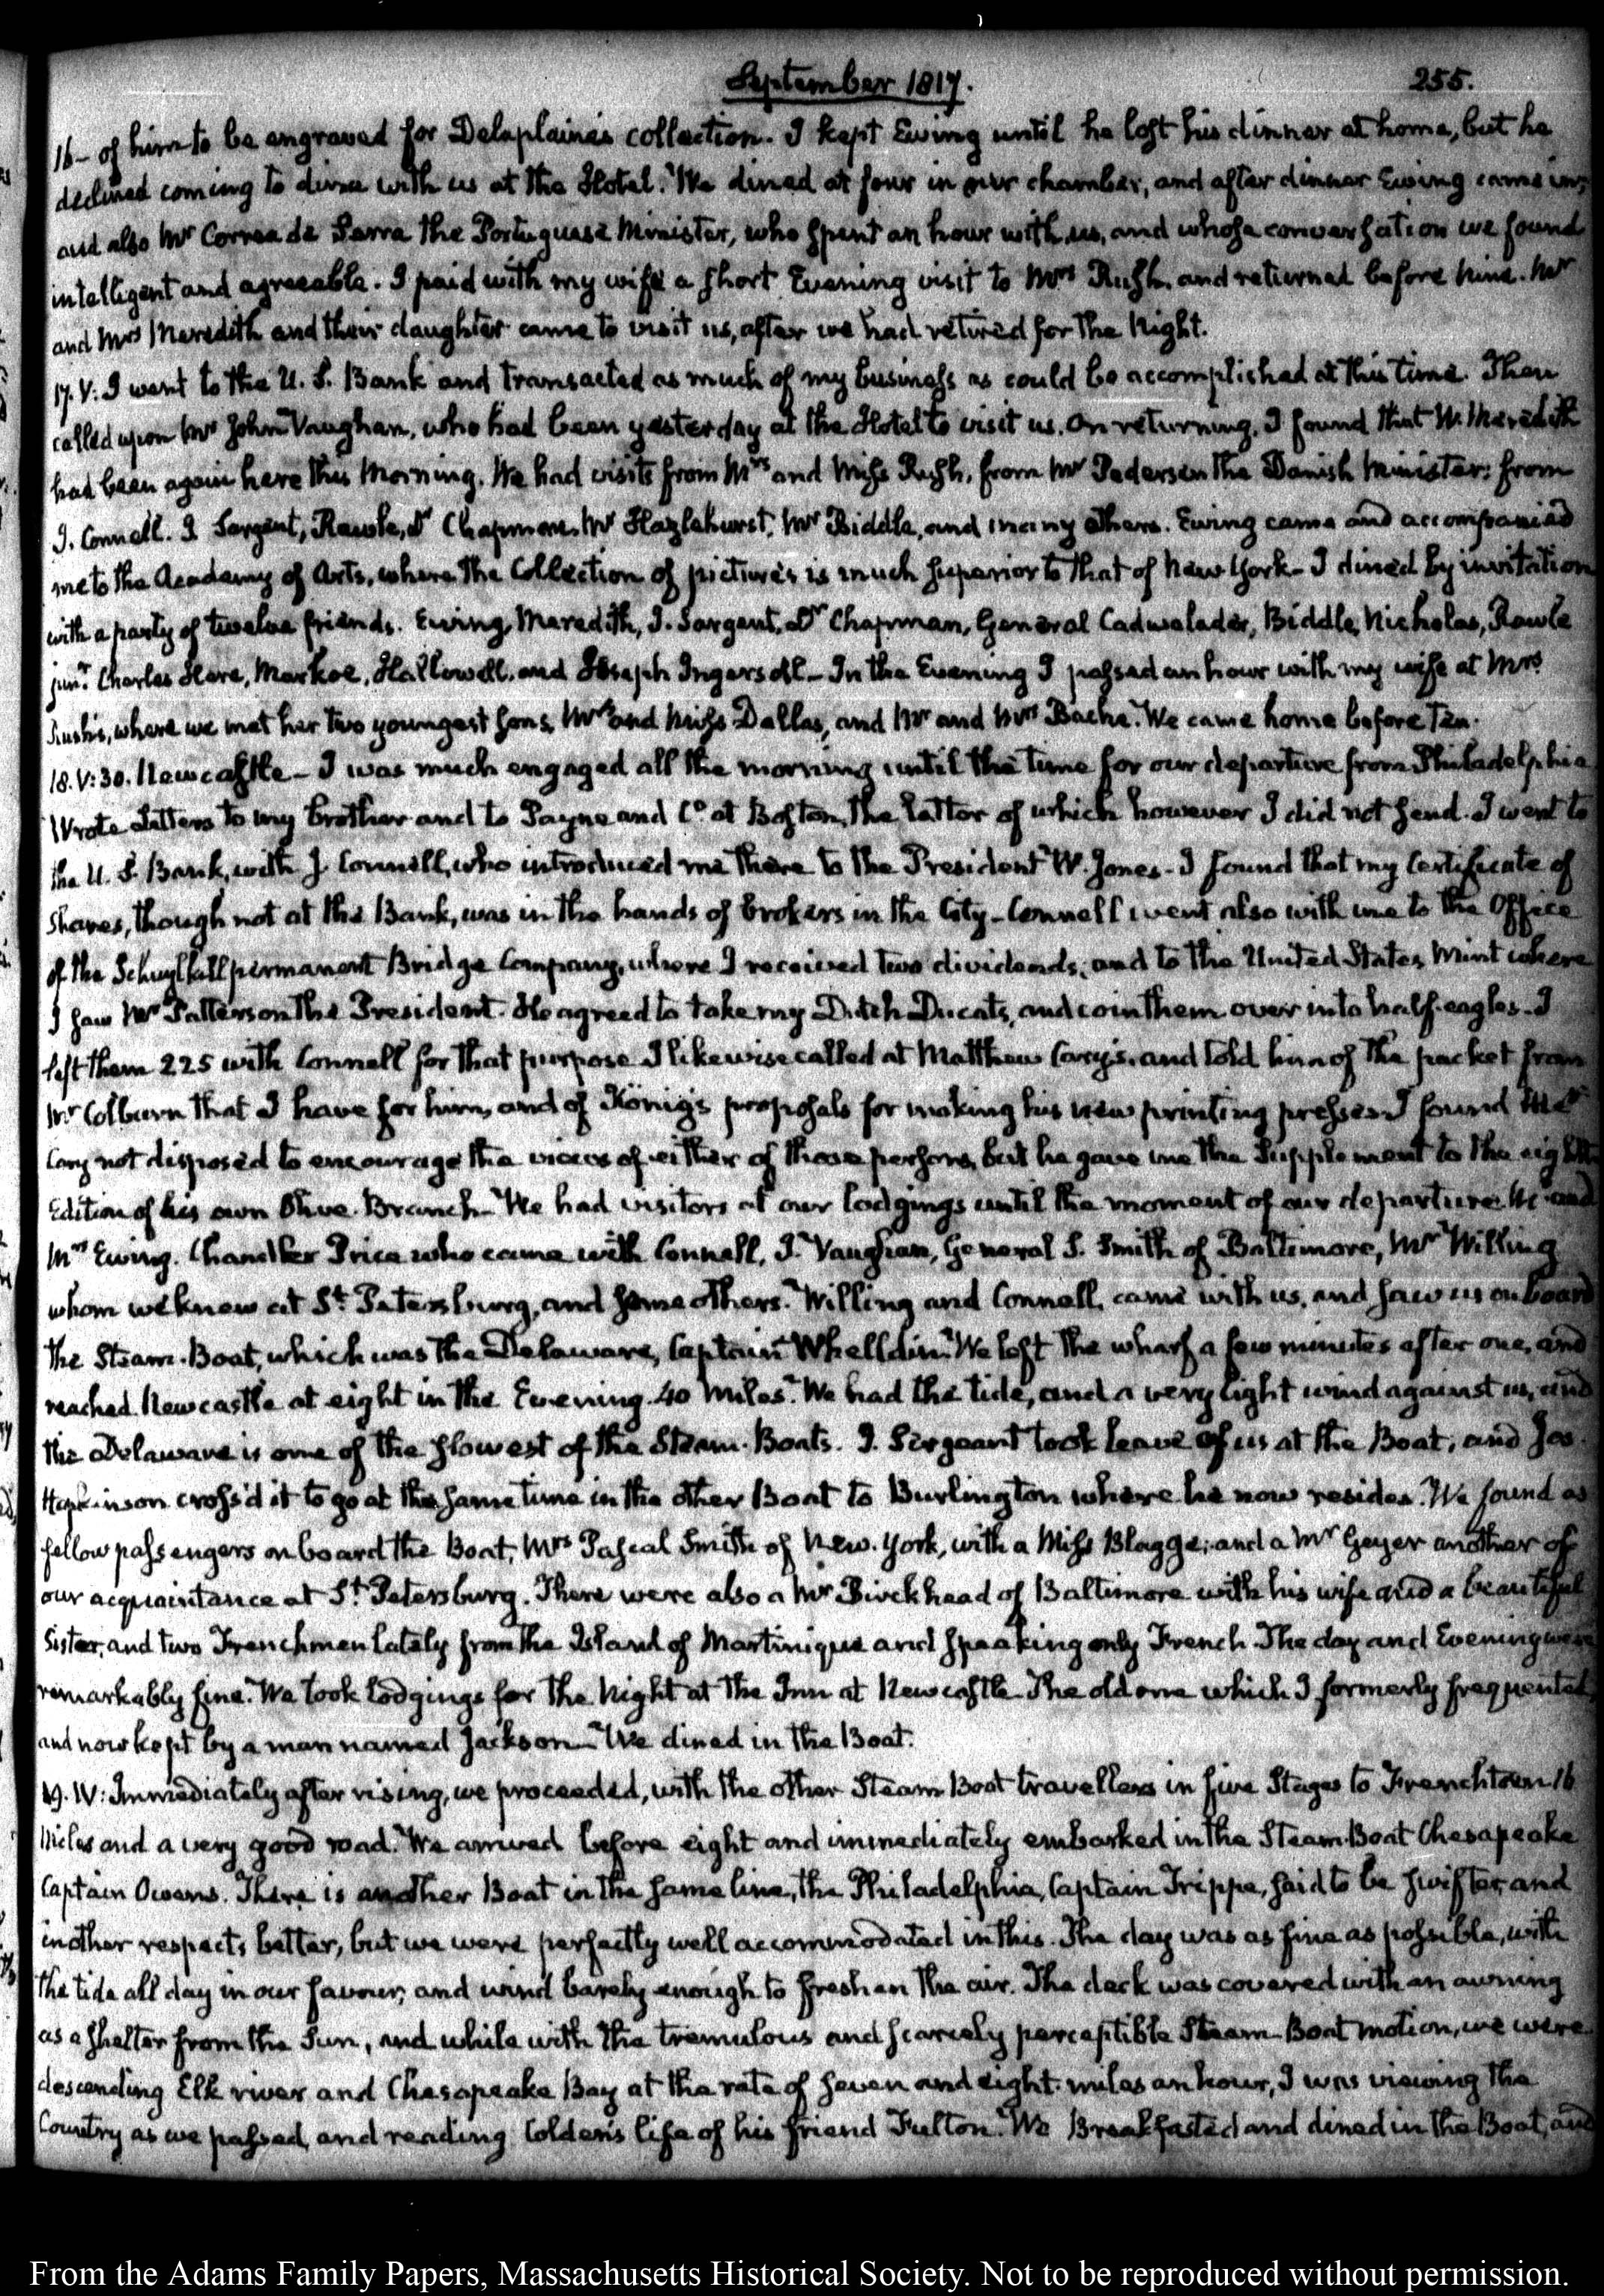 September 1817.
255.
16- of him to be engraved for Delaplaine's collection. I kept Ewing until he lost his dinner at home, but he
declined coming to dine with us at the Hotel. We dined at four in our chamber, and after dinner Ewing came in;
and also Mr Correa de Serra the Portuguese Minister, who spent an hour with us, and whose conversation we found
intelligent and agreeable. I paid with my wife a short Evening visit to Mrs Rush, and returned before nine. Mr
and Mrs Meredith and their daughter came to visit us, after we had retired for the Night.
17. V: I went to the U. S. Bank and transacted as much of my business as could be accomplished at this time. Then
called upon Mr John Vaughan, who had been yesterday at the Hotel to visit us. On returning, I found that W. Meredith
had been again here this Morning. We had visits from Mrs and Miss Rush, from Mr Pedersen the Danish Minister; from
J. Connell. J. Sargent, Rawle, Dr Chapman, Mr Hazlehurst, Mr Biddle, and many others. Ewing came and accompanied
me to the Academy of Arts, where the Collection of pictures is much superior to that of New York- I dined by invitation
with a party of twelve friends. Ewing, Meredith, J. Sargent, Dr Chapman, General Cadwalader, Biddle, Nicholas, Rawle
junr. Charles Hare, Markoe, Hallowell, and Joseph Ingersoll- In the Evening I passed an hour with my wife at Mrs
Rush's, where we met her two youngest sons, Mrs and Miss Dallas, and Mr and Mrs Bache. We came home before Ten.
18. V:30. Newcastle- I was much engaged all the morning until the time for our departure from Philadelphia
Wrote Letters to my brother and to Payne and Co at Boston, the latter of which however I did not send. I went to
the U. S. Bank, with J. Connell, who introduced me there to the President W. Jones- I found that my Certificate of
Shares, though not at the Bank, was in the hands of brokers in the City- Connell went also with me to the Office
of the Schuylkill permanent Bridge Company, where I received two dividends; and to the United States Mint where
I saw Mr Patterson the President. He agreed to take my Dutch Ducats, and coin them over into half-eagles- I
left them 225 with Connell for that purpose I likewise called at Matthew Carey's, and told him of the packet from
Mr Colburn that I have for him, and of König's proposals for making his new printing presses I found Mr
Carey not disposed to encourage the views of either of those persons, but he gave me the Supplement to the eighth
Edition of his own Olive Branch- We had visitors at our lodgings until the moment of our departure. Mr and
Mrs Ewing. Chandler Price who came with Connell, J. Vaughan, General S. Smith of Baltimore, Mr Willing
whom we knew at St. Petersburg, and some others. Willing and Connell, came with us, and saw us on board
the Steam-Boat, which was the Delaware, Captain Whelldin. We left the wharf a few minutes after one, and
reached Newcastle at eight in the Evening. 40 Miles. We had the tide, and a very light wind against us, and
the Delaware is one of the slowest of the Steam-Boats. J. Sergeant took leave of us at the Boat, and Jos.
Hopkinson cross'd it to go at the same time in the other Boat to Burlington where he now resides. We found as
fellow passengers on board the Boat, Mrs Pascal Smith of New-York, with a Miss Blagge; and a Mr Geyer another of
our acquaintance at St. Petersburg. There were also a Mr Birckhead of Baltimore with his wife and a beautiful
Sister, and two Frenchmen lately from the Island of Martinique and speaking only French. The day and Evening were
remarkably fine. We took lodgings for the Night at the Inn at Newcastle- The old one which I formerly frequented,
and now kept by a man named Jackson- We dined in the Boat.
19. IV: Immediately after rising, we proceeded, with the other Steam Boat travellers in five Stages to Frenchtown 16
Miles and a very good road. We arrived before eight and immediately embarked in the Steam-Boat Chesapeake
Captain Owens. There is another Boat in the same line, the Philadelphia, Captain Trippe, said to be swifter, and
in other respects better, but we were perfectly well accommodated in this. The day was as fine as possible, with
the tide all day in our favour, and wind barely enough to freshen the air. The deck was covered with an awning
as a shelter from the Sun, and while with the tremulous and scarcely perceptible Steam-Boat motion, we were
descending Elk river and Chesapeake Bay at the rate of seven and eight miles an hour, I was viewing the
Country as we passed, and reading Colden's life of his friend Fulton. We Breakfasted and dined in the Boat, and
From the Adams Family Papers, Massachusetts Historical Society. Not to be reproduced without permission.